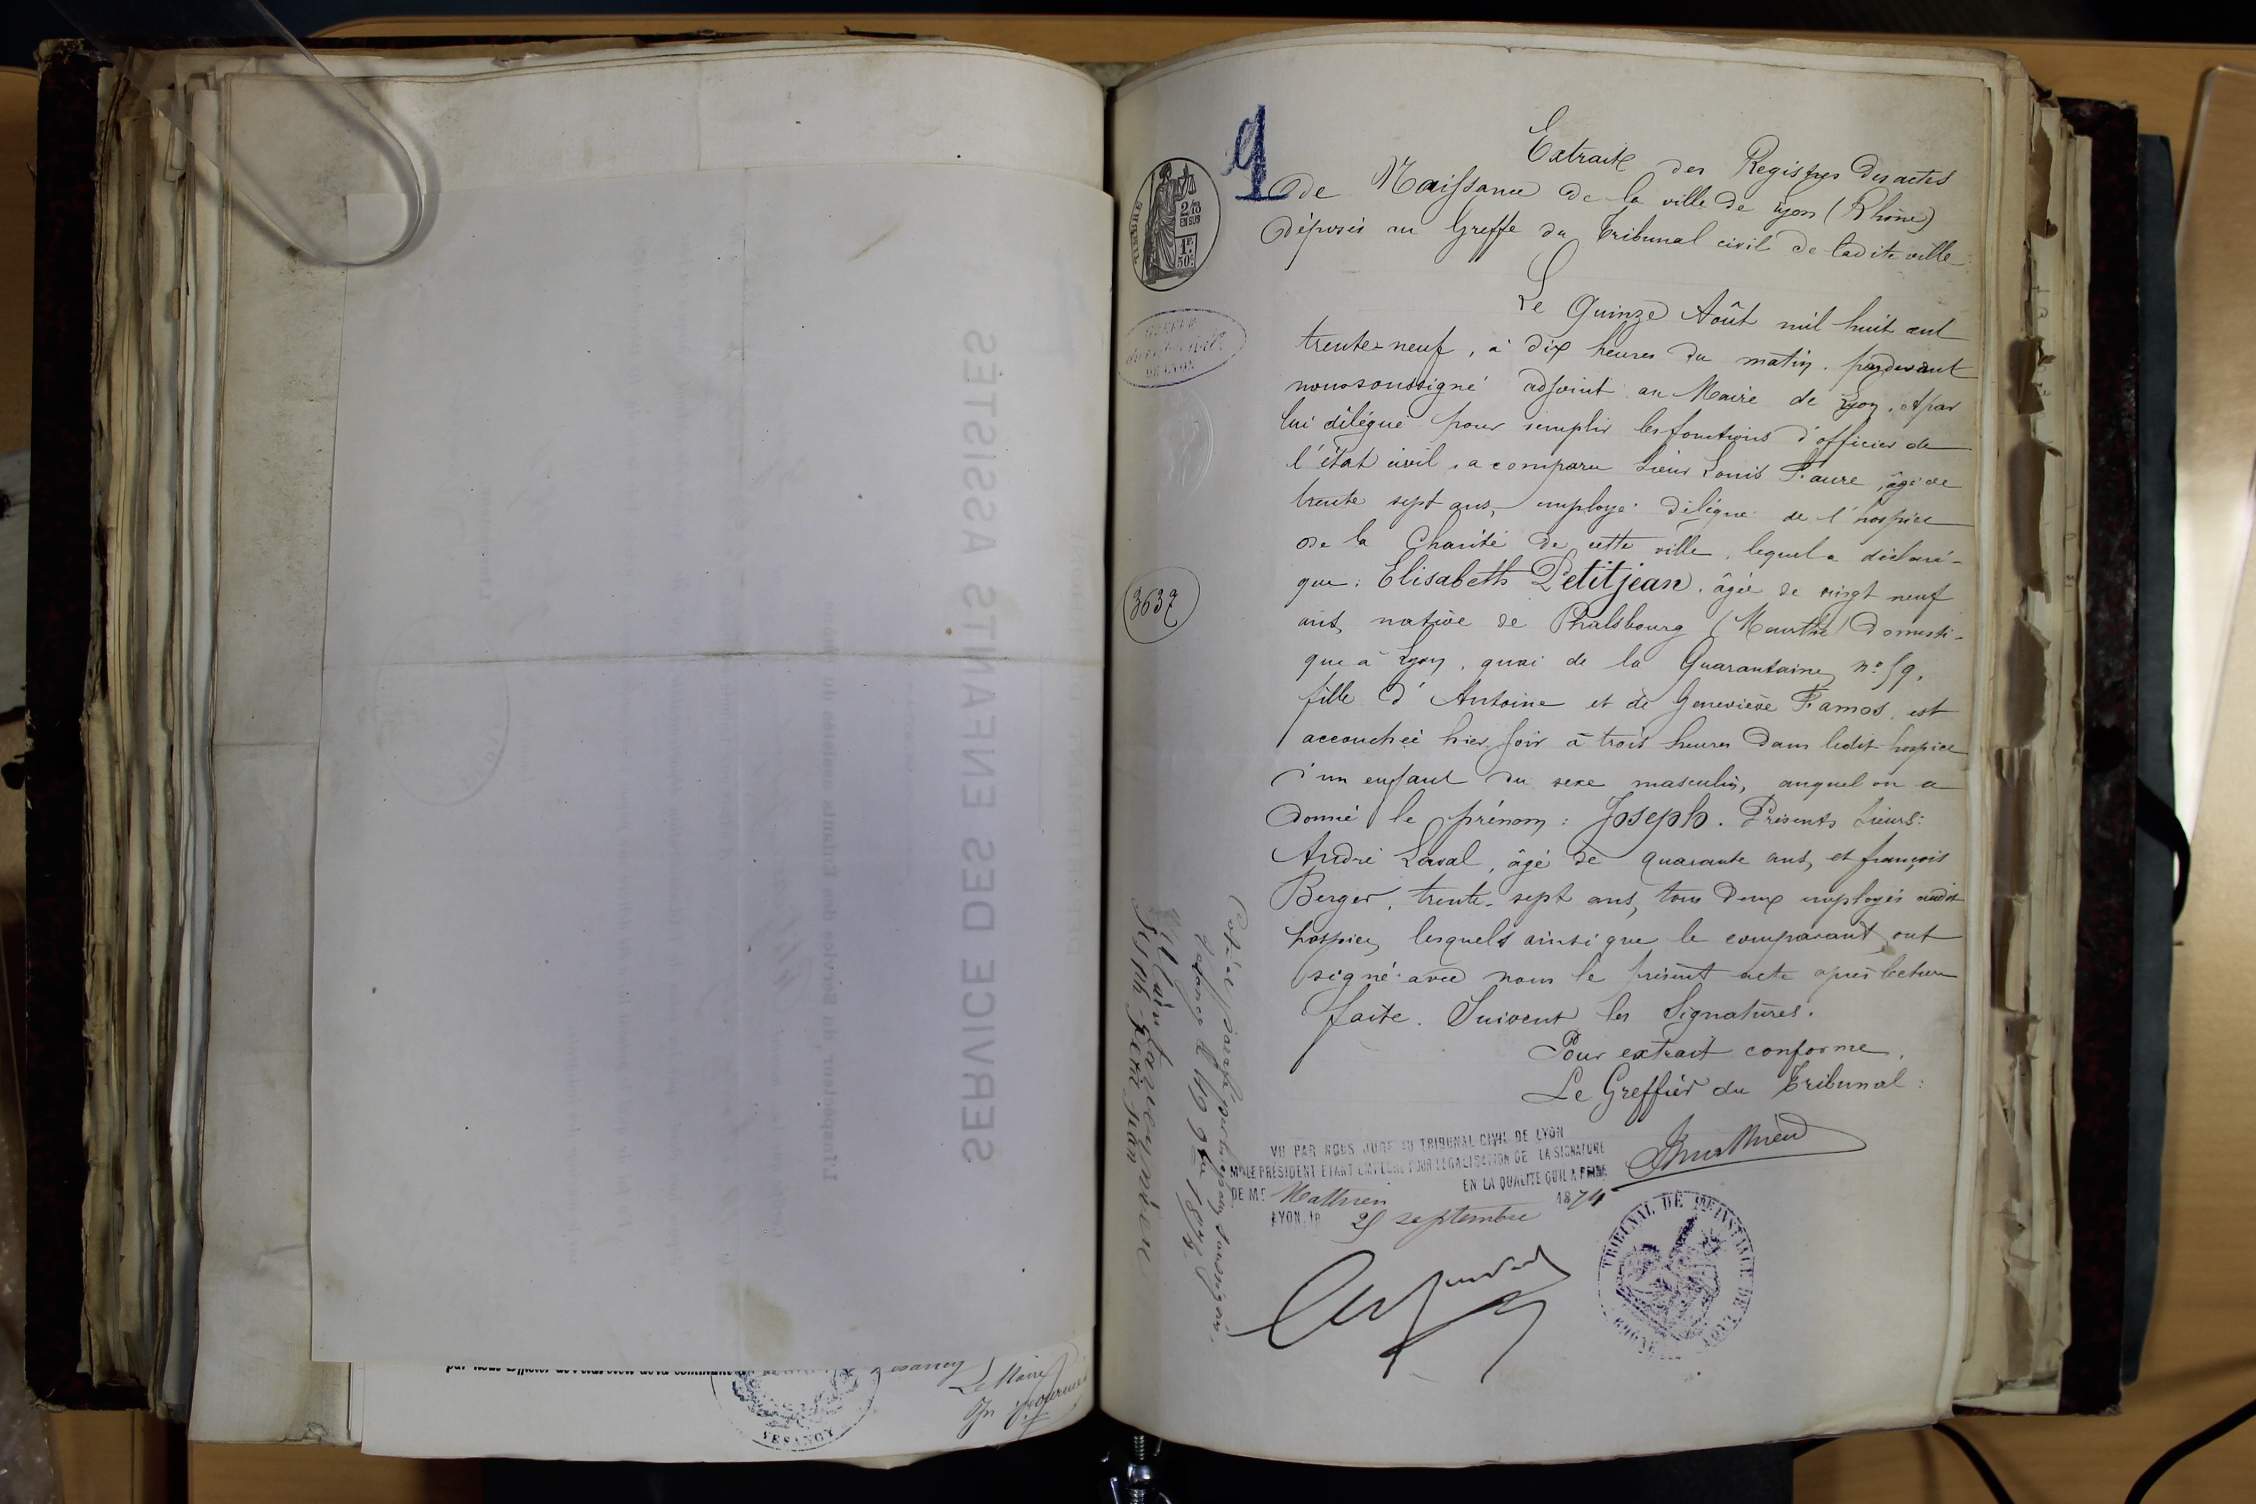 SERVICE DES ENFANTS ASSISTÉS
par nous Officier de l'état civil de la commune
Le Maire
9
TIMBRE
2/10
EN SUS
1F
50c
GREFFE
DE LYON
3637
Extrait des Registres des actes
de Naissance de la ville de Lyon (Rhône)
déposés au Greffe du Tribunal civil de ladite ville
Le Quinze Août mil huit cent
trente-neuf, à dix heures du matin. pardevant
nous soussigné adjoint au Maire de Lyon, et par
lui délégué pour remplir les fonctions d'officier de
l'état civil, a comparu Sieur Louis Faure, âgé de
trente sept ans, employé délégué de l'hospice
de la Charité de cette ville, lequel a déclaré
que: Elisabeth Petitjean, âgée de vingt neuf
ans, native de Phalsbourg (Meurthe) domesti-
que à Lyon, quai de la Quarantaine, n° 59,
fille d'Antoine et de Geneviève Famos, est
accouchée hier soir à trois heures dans ledit hospice
d'un enfant du sexe masculin, auquel on a
donné le prénom: Joseph. Présents Sieurs:
André Laval, âgé de quarante ans, et françois
Berger, trente-sept ans, tous deux employés audit
hospice, lesquels ainsi que le comparant, ont
signé avec nous le présent acte après lecture
faite. Suivent les Signatures.
Pour extrait conforme,
Le Greffier du Tribunal:
VU PAR NOUS JUGE AU TRIBUNAL CIVIL DE LYON
M. LE PRÉSIDENT ETANT EMPÊCHÉ POUR LEGALISATION DE LA SIGNATURE
DE ME Mathieu EN LA QUALITÉ QU'IL A PRISE
LYON, le 25 septembre 1874
TRIBUNAL DE 1RE INSTANCE DE LYON
RHONE
Joseph Petit Jean